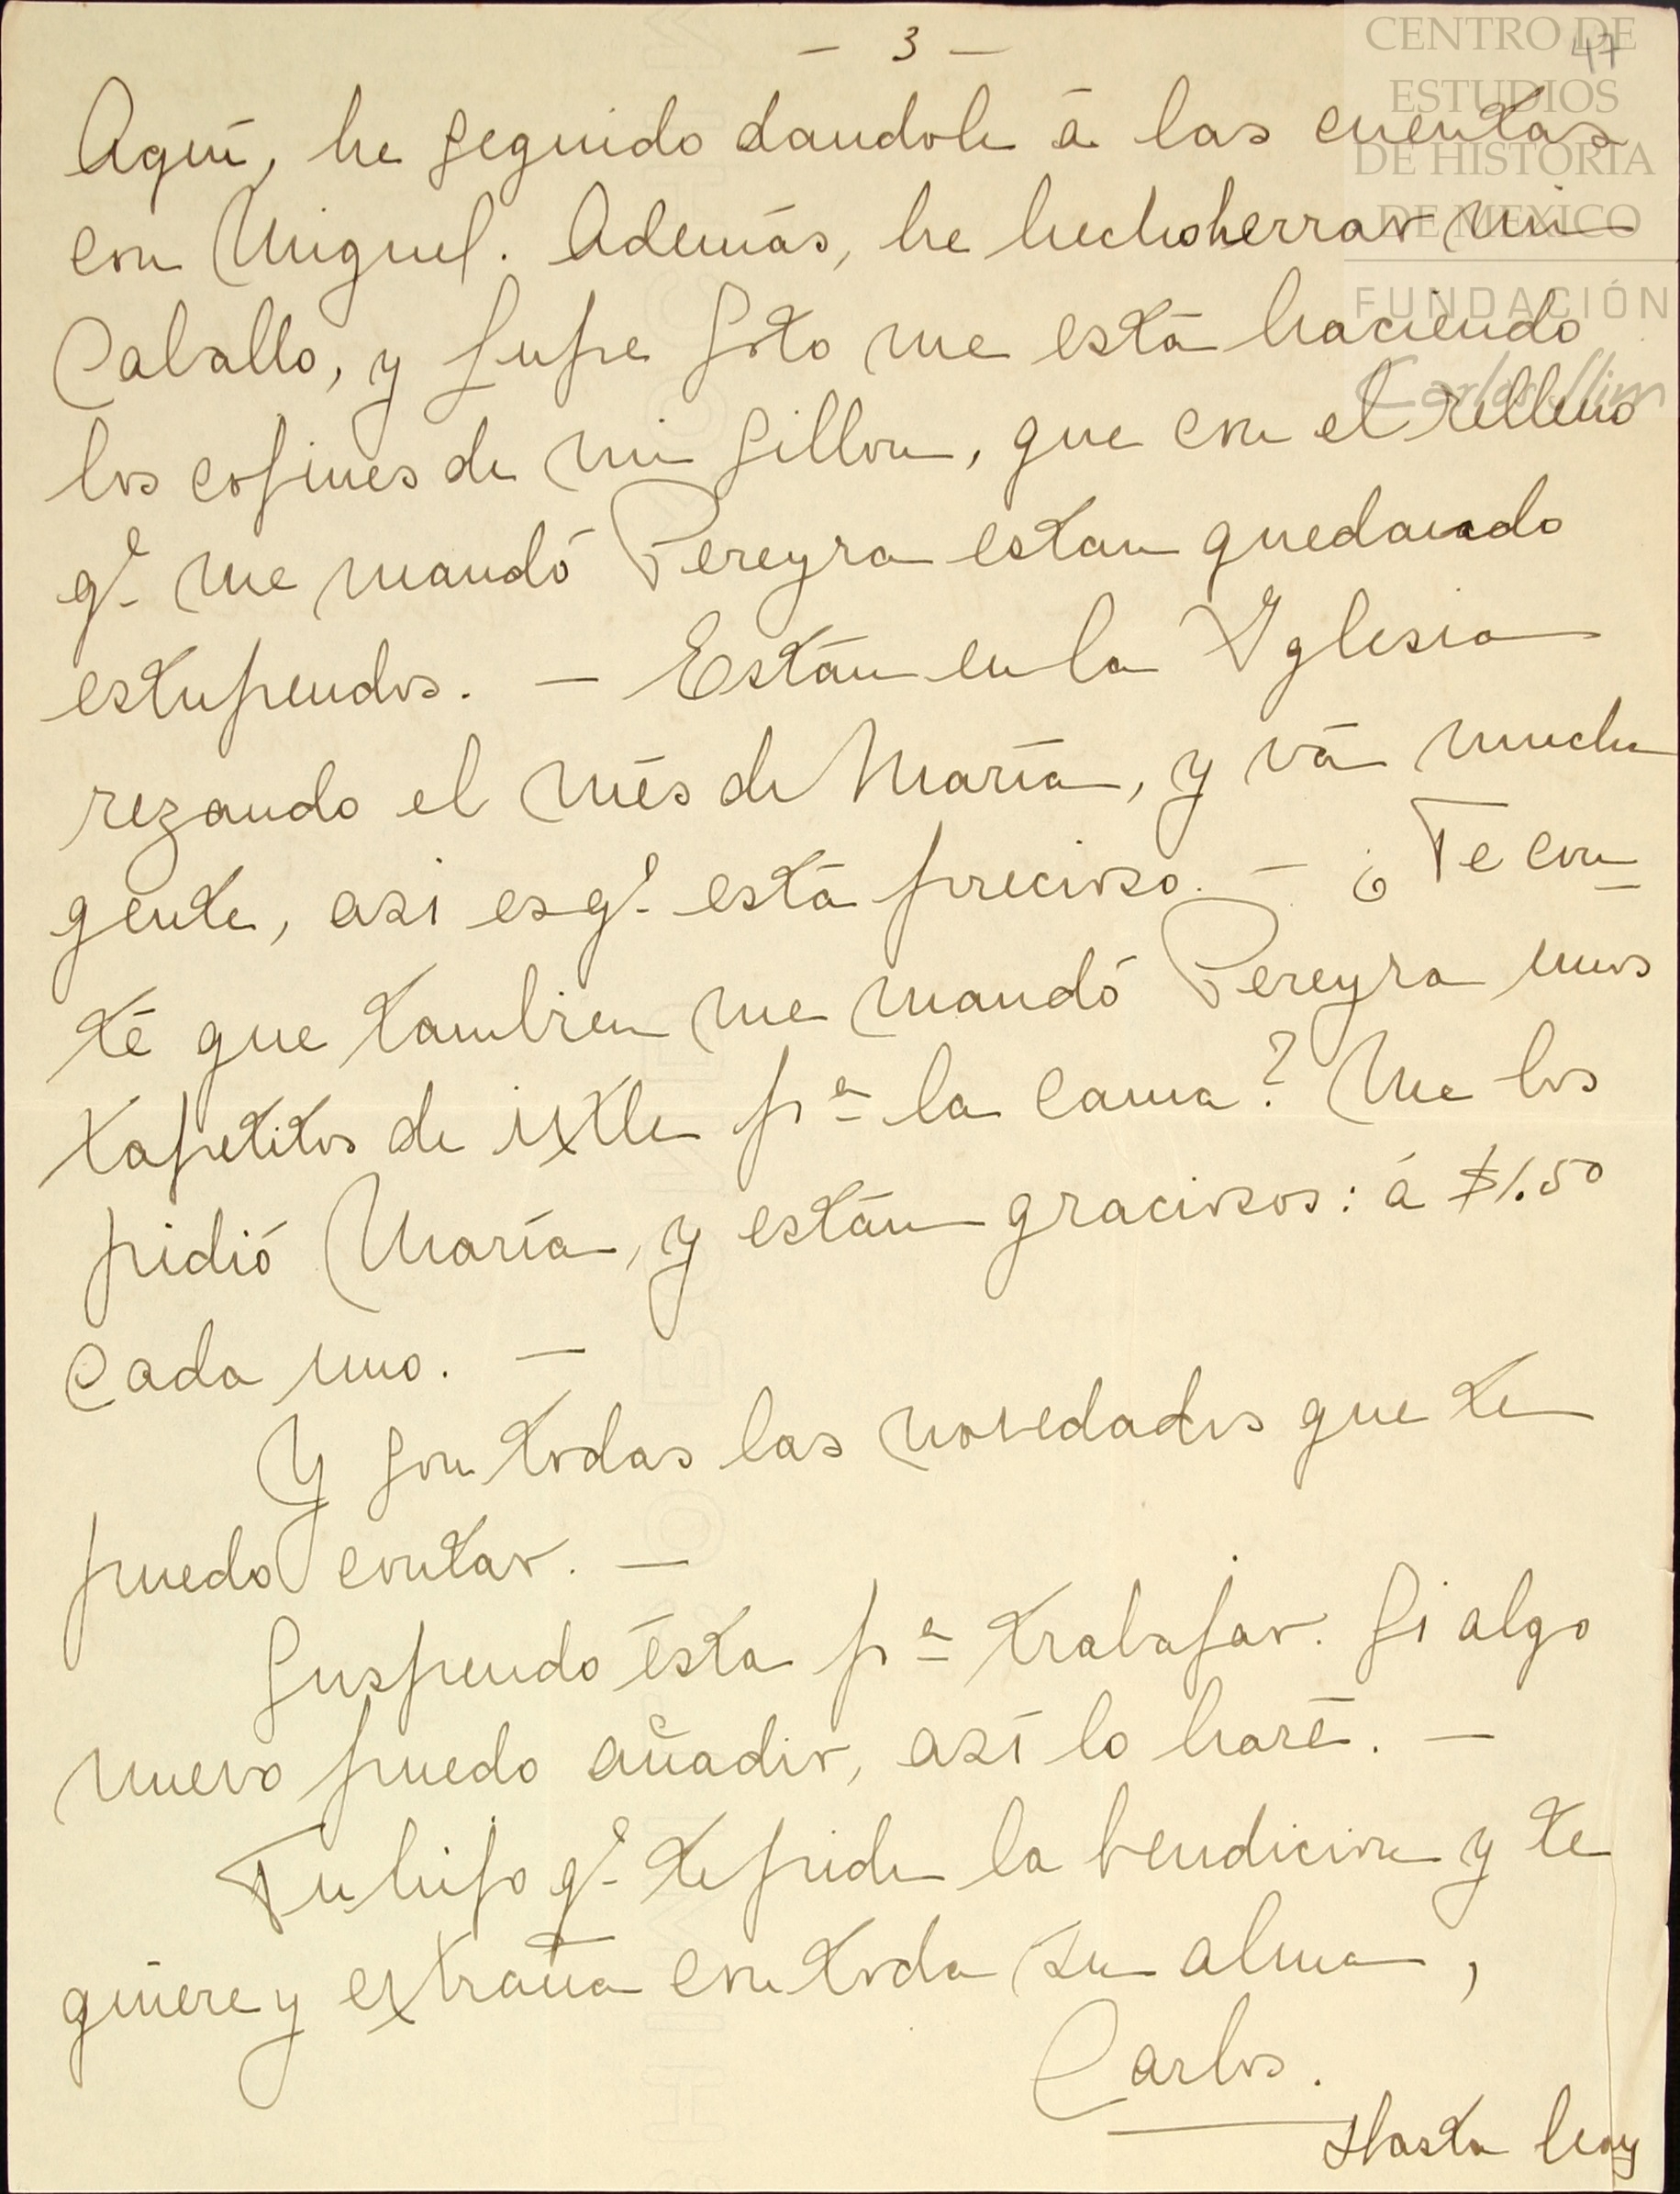 - 3 -
47
CENTRO DE
ESTUDIOS
DE HISTORIA
DE MEXICO
FUNDACIÓN
Carlos Slim
Aquí, he seguido dandole á las cuentas
con Miguel. Además, he hecho herrar mi
Caballo, y Lupe Soto me está haciendo
los cojines de mi sillon, que con el relleno
q.e me mandó Pereyra estan quedando
estupendos. — Están en la Yglesia
rezando el més de María, y vá mucha
gente, asi es q.e está precioso. — ¿Te con-
té que tambien me mandó Pereyra unos
tapetitos de ixtle p.a la cama? Me los
pidió María, y están graciosos: á $1.50
cada uno. —
Y son todas las novedades que te
puedo contar. —
Suspendo ésta p.a trabajar. Si algo
nuevo puedo añadir, así lo haré. —
Tu hijo q.e te pide la bendicion y te
quiere y extraña con toda su alma,
Carlos.
Hasta hoy